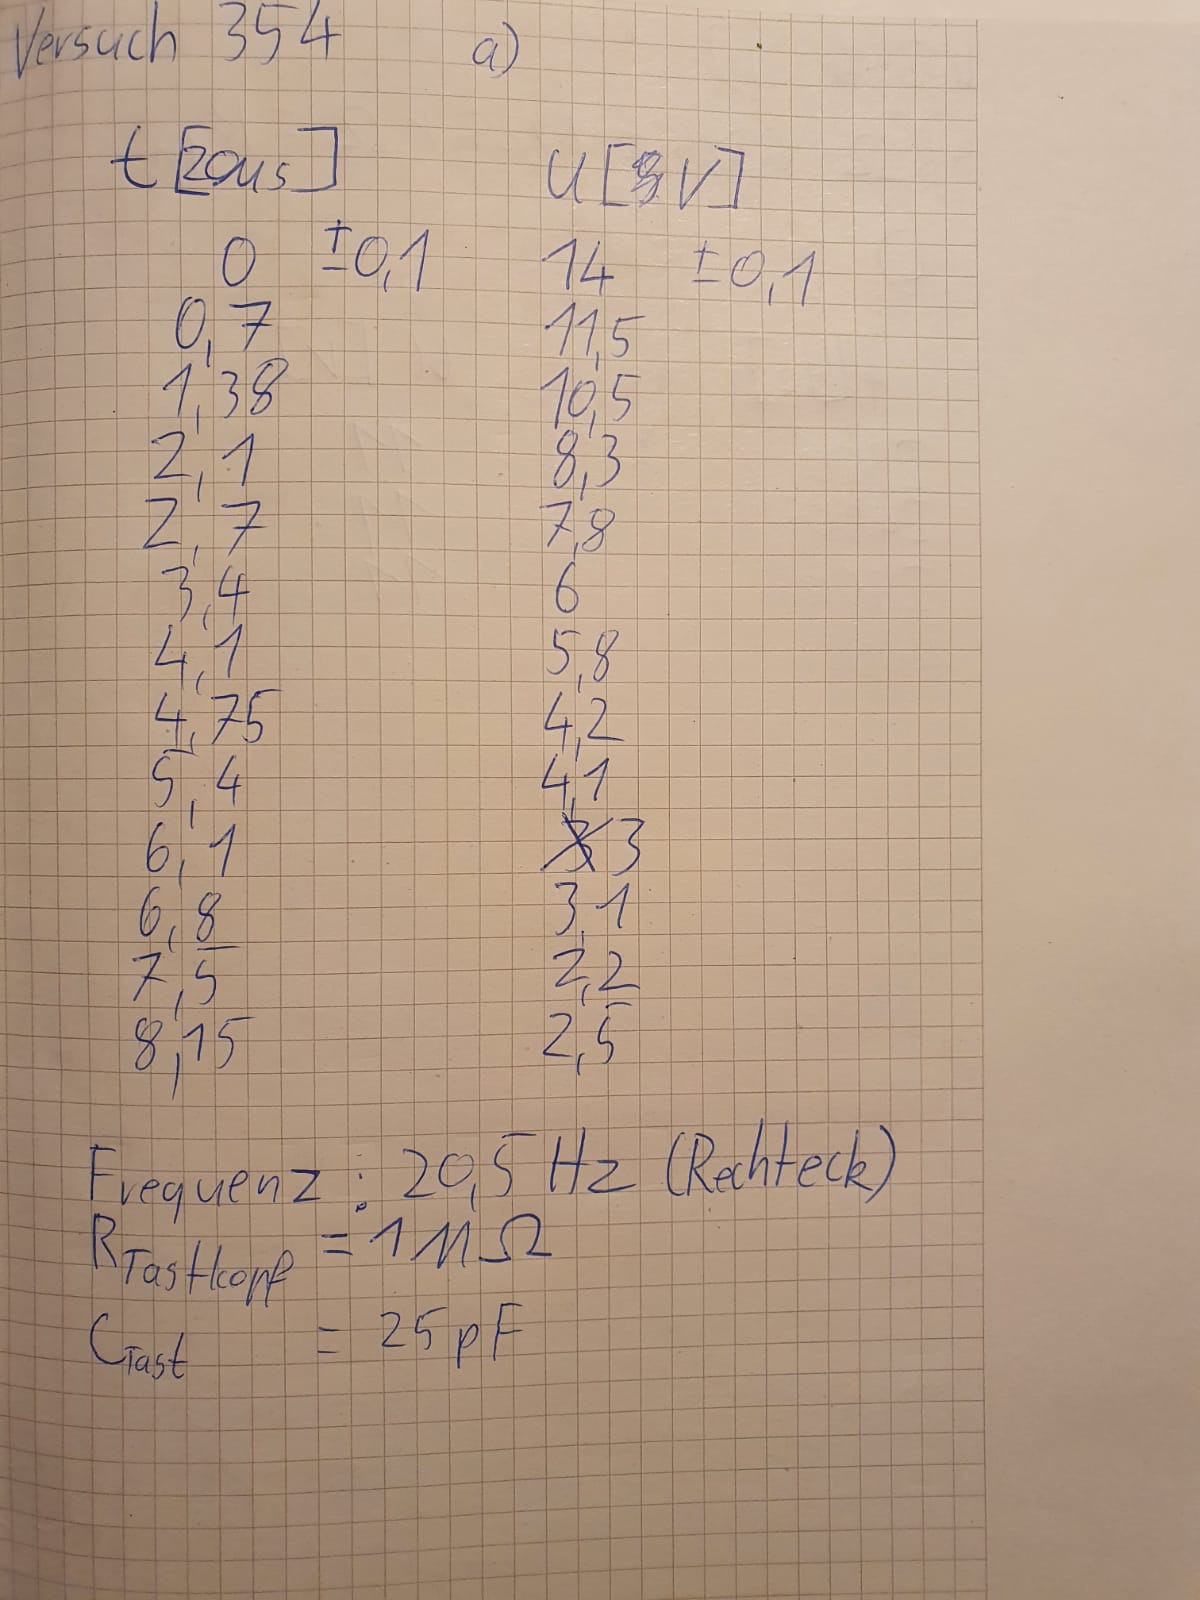 Versuch 354 a)
t [20us] U [V]
0 ±0,1 14 ±0,1
0,7 11,5
1,38 10,5
2,1 8,3
2,7 7,8
3,4 6
4,1 5,8
4,75 4,2
5,4 4,1
6,1 3
6,8 3,1
7,5 2,2
8,15 2,5
Frequenz: 20,5 Hz (Rechteck)
R Tastkopf = 1 MΩ
C Tast = 25 pF